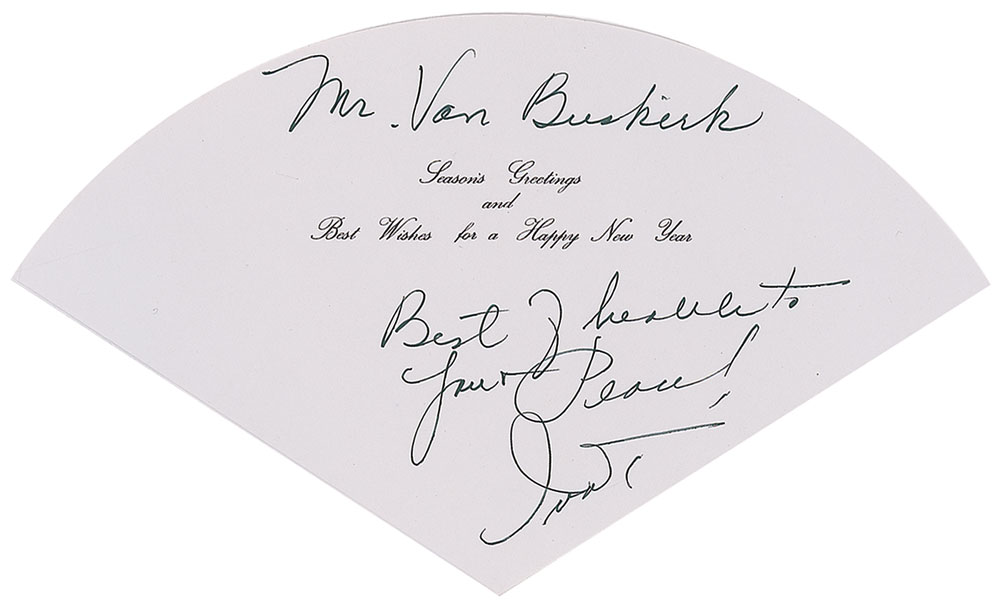 Mr. Van Buskirk
Season's Greetings
and
Best Wishes for a Happy New Year
Best of health to
you &
Peace!